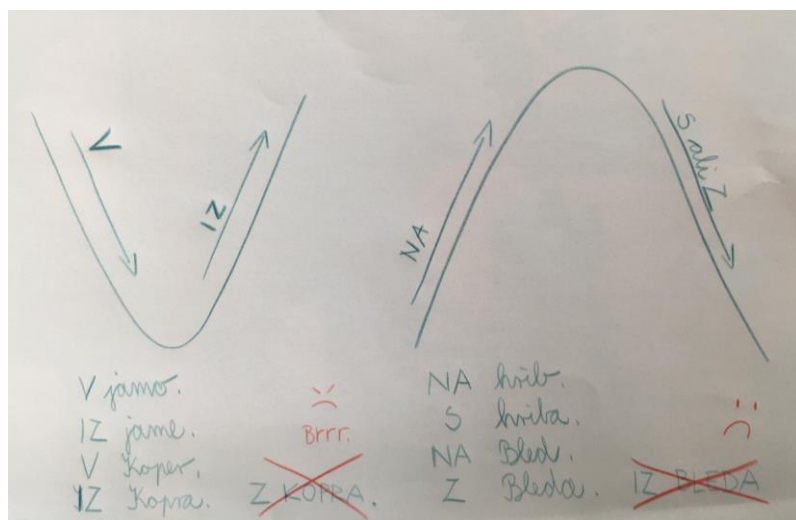 V
IZ
NA
S ali Z
V jamo.
IZ jame.
V Koper.
IZ Kopra.
Brrr.
Z KOPRA.
NA hrib.
S hriba.
NA Bled.
Z Bleda.
IZ BLEDA